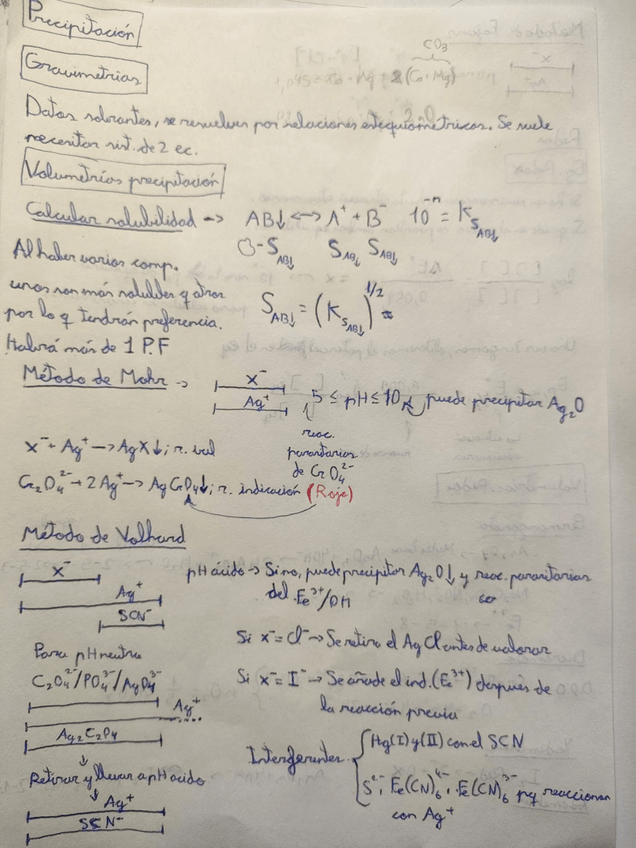 Precipitación
Gravimetrías
Datos sobrantes, se resuelven por relaciones estequiométricas. Se suele
necesitar sist. de 2 ec.
Volumetrías precipitación
Calcular solubilidad → AB↓ ↔ A⁺ + B⁻ 10⁻ⁿ = K_S_AB↓
S_AB↓ S_AB↓ S_AB↓
Al haber varios comp.
unos son más solubles y otros
por lo q tendrán preferencia.
Habrá más de 1 P.F
S_AB↓ = (K_S_AB↓)^1/2
Método de Mohr →
X⁻
Ag⁺
5 ≤ pH ≤ 10 puede precipitar Ag₂O
reac.
parasitarias
de CrO₄²⁻
X⁻ + Ag⁺ → AgX↓; r. val
Cr₂O₄²⁻ + 2Ag⁺ → AgCrO₄↓; r. indicación (Rojo)
Método de Volhard
X⁻
Ag⁺
SCN⁻
pH ácido → Si no, puede precipitar Ag₂O↓ y reac. parasitarias
del Fe³⁺/OH
Si X⁻ = Cl⁻ → Se retira el AgCl antes de valorar
Si X⁻ = I⁻ → Se añade el ind. (Fe³⁺) después de
la reacción previa
Para pH neutro
C₂O₄²⁻/PO₄³⁻/AsO₄³⁻
Ag⁺
Ag₂C₂O₄
Retirar y llevar a pH ácido
Ag⁺
SCN⁻
Interferentes
Hg(I) y (II) con el SCN
S²⁻, Fe(CN)₆⁴⁻, Fe(CN)₆³⁻ pq reaccionan
con Ag⁺